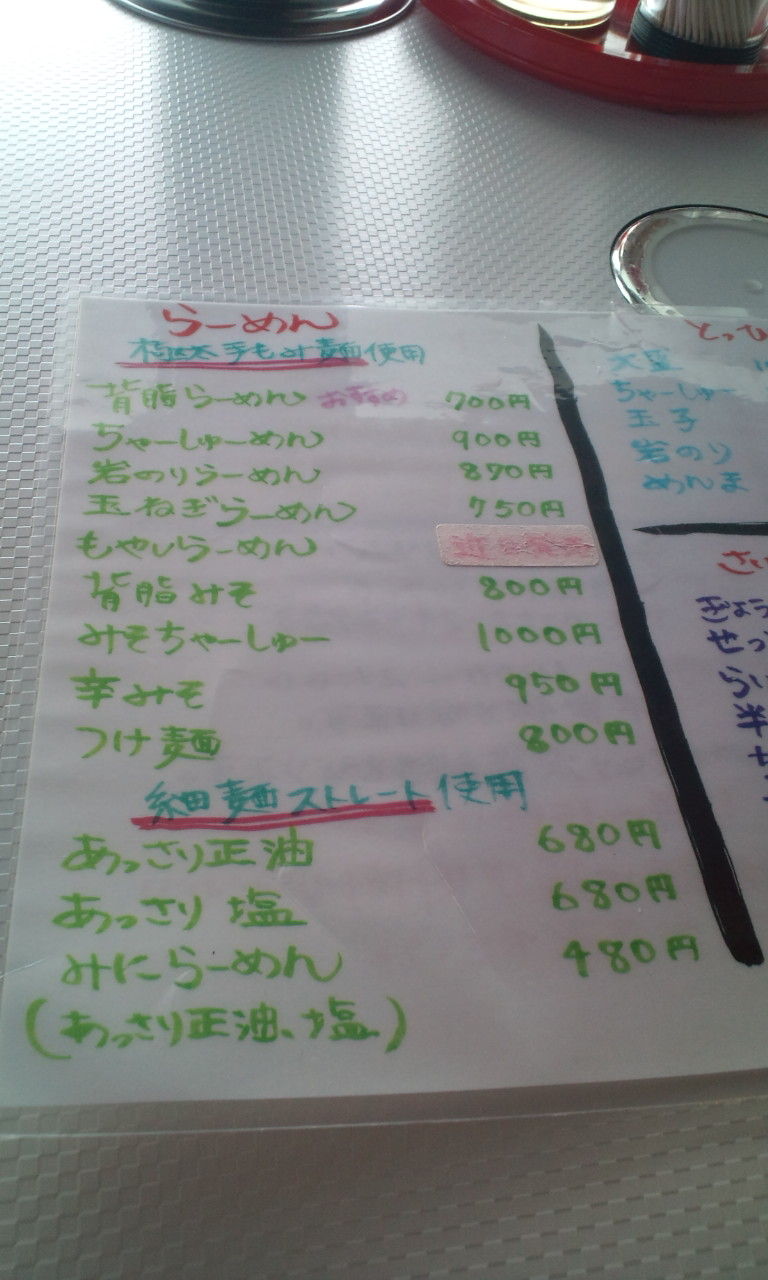 らーめん
極太手もみ麺使用
背脂らーめん おすすめ 700円
ちゃーしゅーめん 900円
岩のりらーめん 870円
玉ねぎらーめん 750円
もやしらーめん
背脂みそ 800円
みそちゃーしゅー 1000円
辛みそ 950円
つけ麺 800円
細麺ストレート使用
あっさり正油 680円
あっさり塩 680円
みにらーめん 480円
(あっさり正油、塩)
とっぴ
大盛
ちゃーしゅー
玉子
岩のり
めんま
さい
ぎょう
せっ
らい
半